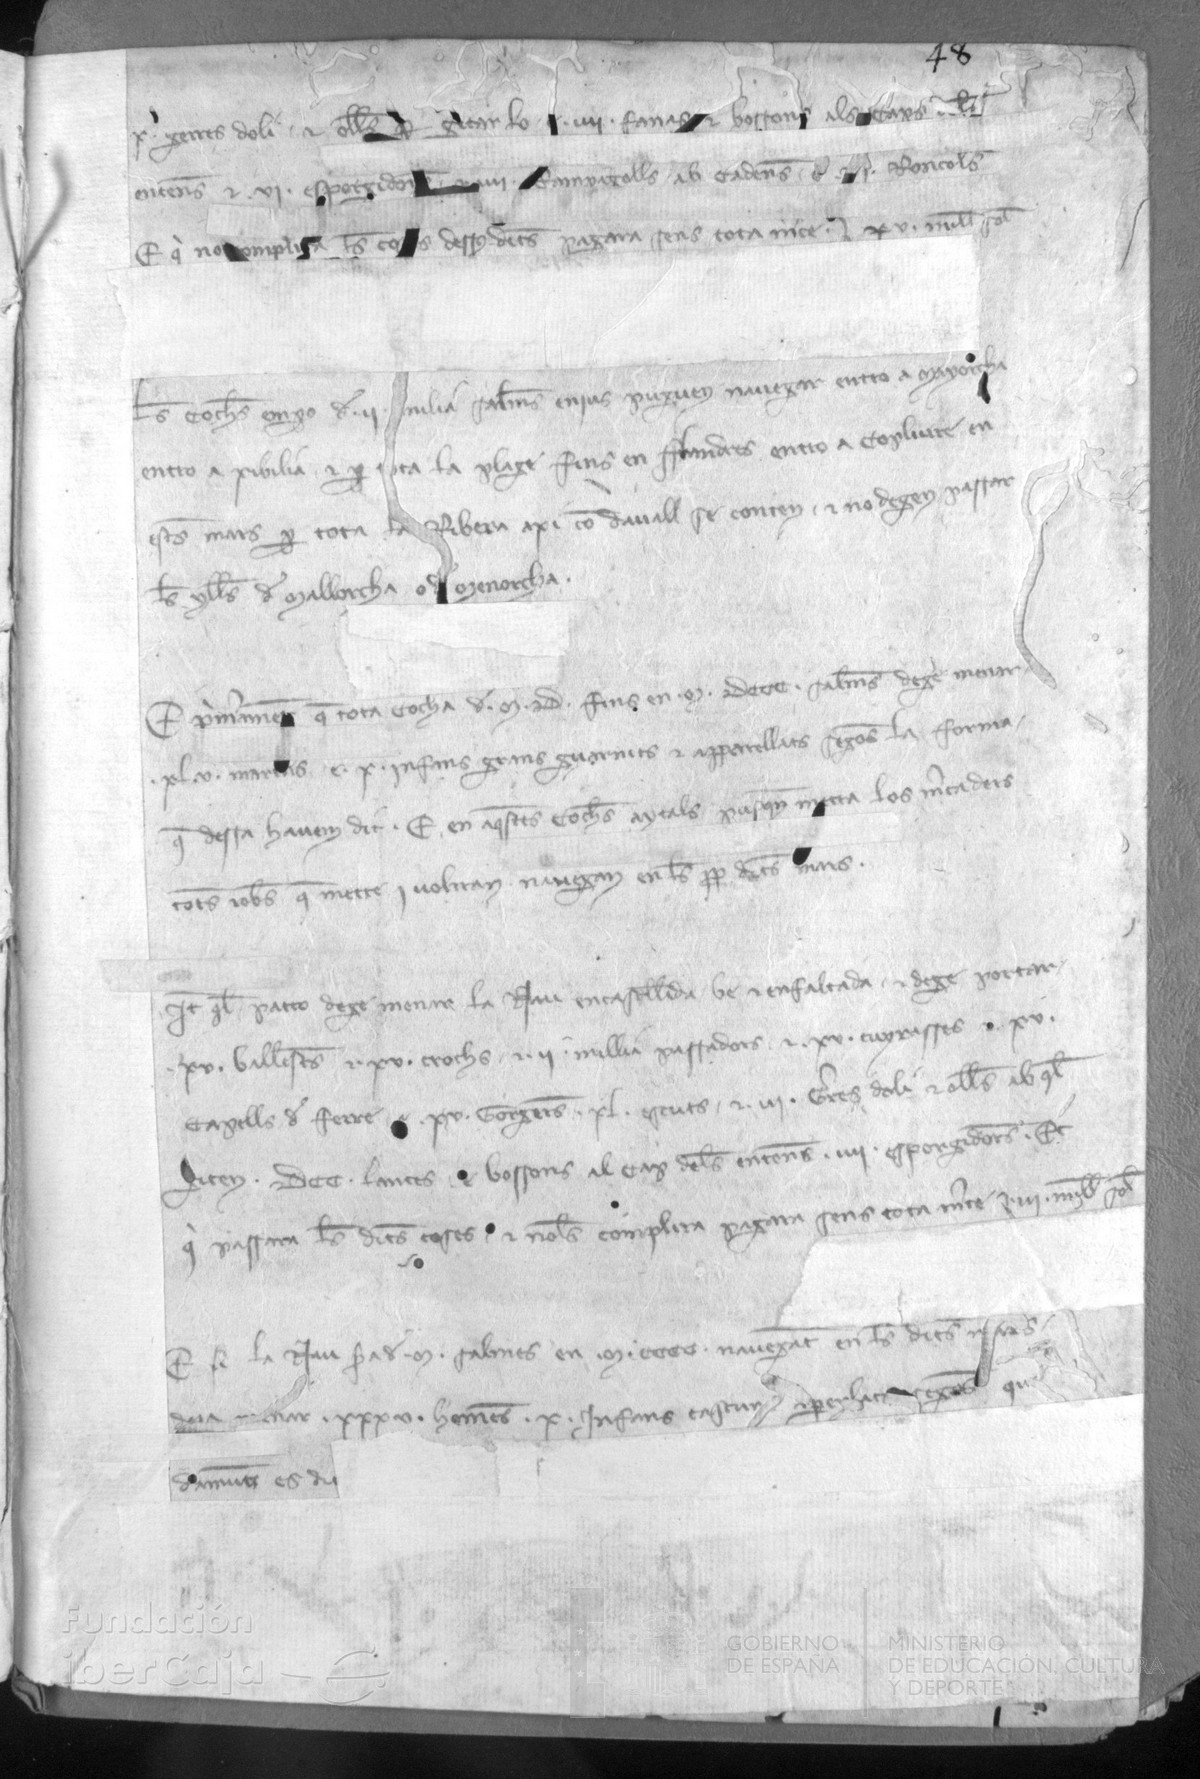 48
x. gerres doli. & oll̄s p̱ gitar lo .iiii. fanas & bossons als caps
entens̄ & .vi. esporgidors̄ Campagolls ab Cadens̄ e Roncols̄
E q̇ no complira l̄s coses dessus dits̄ pagara sens tota m̄ce .xv. mill̄ sol̄
L̄s Coch̄s engo d̄ .ii. milia salm̄s enjus puguen navegar entro a Mayorcha
entro a xibilia & p̱ tota la plage fins en fflandres entro a Copliure en
est̄s mars p̱ tota la Ribera axi cō davall se conten. & no degen passar
l̄s yll̄s d̄ Mallorcha o d̄ Menorcha.
E p̄m̄amen q̄ tota Cocha d̄ .M.D. fins en .M. DCCC. salm̄s dege menar
.xl.v. mariners e .x. infans grans guarnits & apparellats segōs la forma
q̄ dessa havem dit. E en aq̄st̄s Coch̄s aytals pusqn̄ metra los m̄caders
tot̄s rob̄s q̄ metre i volran navegan en l̄s p̱p̱ dit̄s mars.
It̄ ql̄ patro dege menar la Nau encastellada be & enfaltada. & dege portar
.xv. ballest̄s & .xv. crochs. & .ii. millia passadors. & .xv. cuyrasses e .xv.
Capells d̄ ferre e .xv. Gorgeres̄ .xl. escuts. & .vi. Ḡres doli & oll̄s ab ql̄
giten. DCC. lances e bossons al cap del̄s entens̄ .iiii. esporgidors̄. Et
q̇ passara l̄s dit̄s coses. & nol̄s complira pagara sens tota m̄ce .vii. mill̄ sol̄
E si la Nau s̄a d̄ .M. salmes en .M.CCCC. navegat̄ en l̄s dit̄s mars
deia menar .xxxv. homēs .x. Infans cascun apperylat segōs que
damunt es dit
Fundación
iberCaja
GOBIERNO
DE ESPAÑA
MINISTERIO
DE EDUCACIÓN, CULTURA
Y DEPORTE